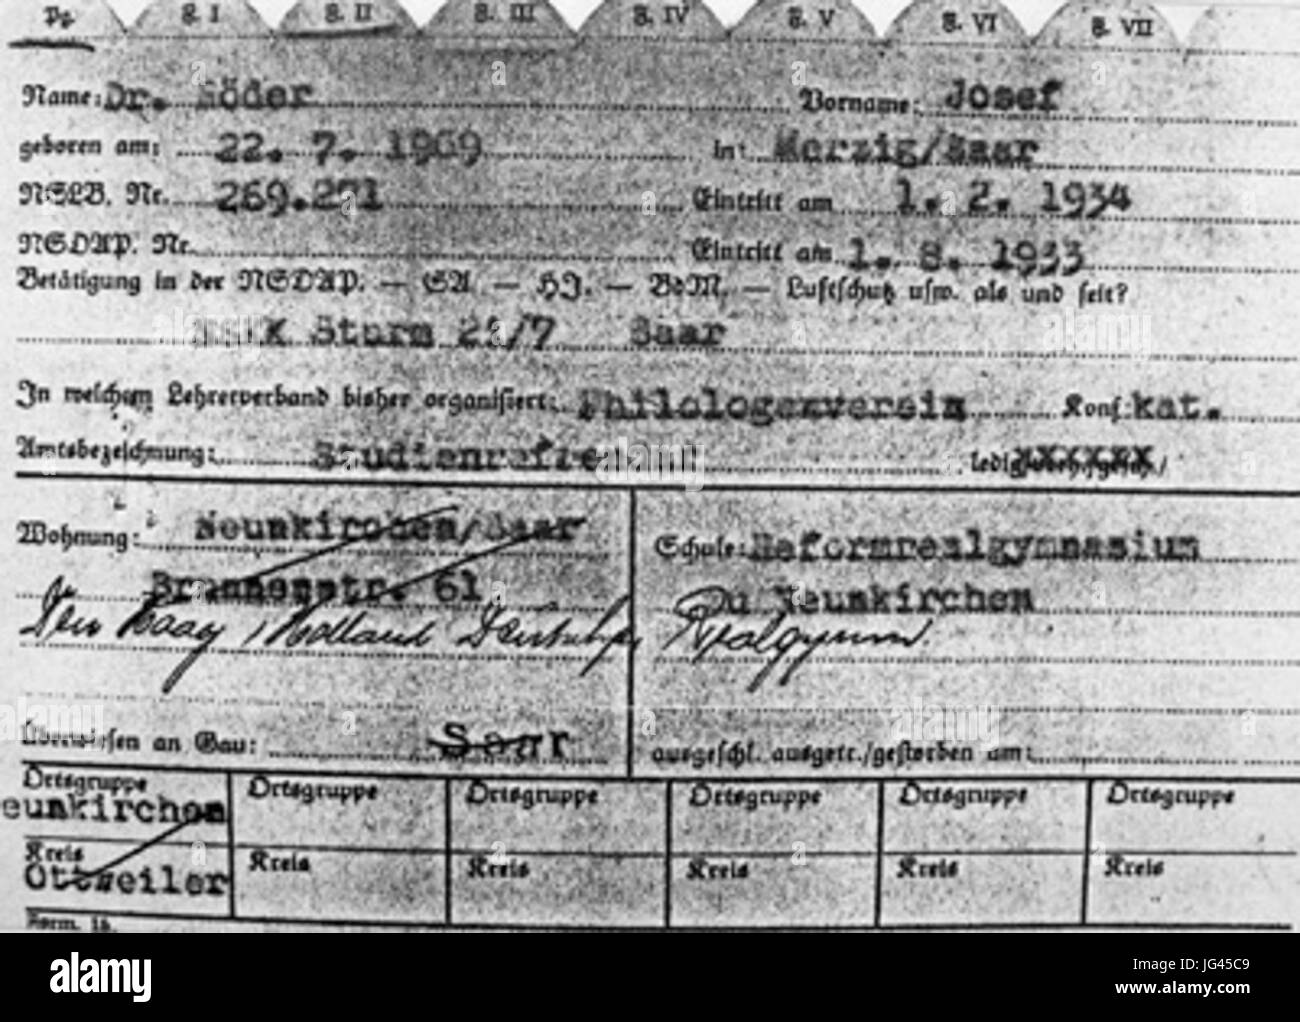 Pg F. I F. II F. III F. IV F. V F. VI F. VII
Name: Dr. Röder Vorname: Josef
geboren am: 22. 7. 1909 in: Merzig/Saar
NSLB. Nr. 269.271 Eintritt am 1. 2. 1934
NSDAP. Nr. Eintritt am 1. 8. 1933
Betätigung in der NSDAP. — SA — HJ. — BdM. — Luftschutz usw. als und seit?
NSKK Sturm 2 /7 Saar
In welchem Lehrerverband bisher organisiert: Philologenverein Konf: kat.
Amtsbezeichnung: Studienreferendar ledig/verh./gesch./
Wohnung: Neunkirchen/Saar
Brunnenstr. 61
Den Haag, Holland
Schule: Reformrealgymnasium
zu Neunkirchen
Realgymn.
Überwiesen an Gau: Saar
ausgeschl. ausgetr./gestorben am:
Ortsgruppe Ortsgruppe Ortsgruppe Ortsgruppe Ortsgruppe Ortsgruppe
eunkirchen
Kreis Kreis Kreis Kreis Kreis Kreis
Ottweiler
Form. 1b.
alamy
alamy
Image ID: JG45C9
www.alamy.com